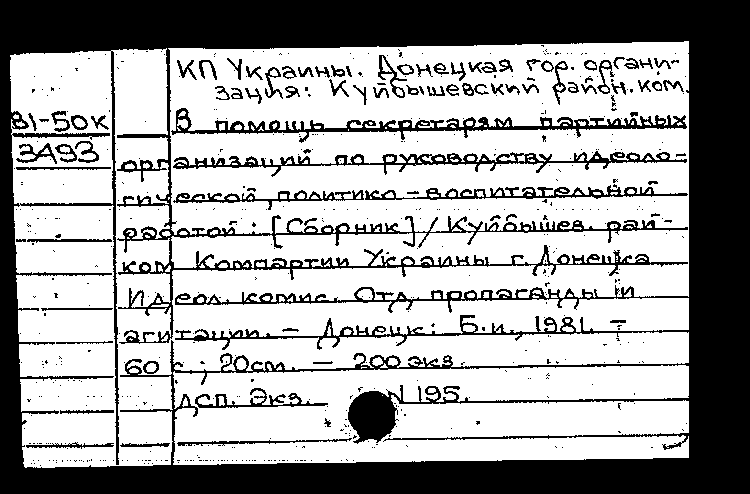 КП Украины. Донецкая гор. органи-
зация: Куйбышевский район. ком.
81-50к
3493
В помощь секретарям партийных
организаций по руководству идеоло-
гической, политико-воспитательной
работой: [Сборник] / Куйбышев. рай-
ком Компартии Украины г. Донецка
Идеол. комис. Отд. пропаганды и
агитации. – Донецк: Б.и., 1981. –
60 с.; 20см. – 200 экз.
ДСП. Экз. N 195.